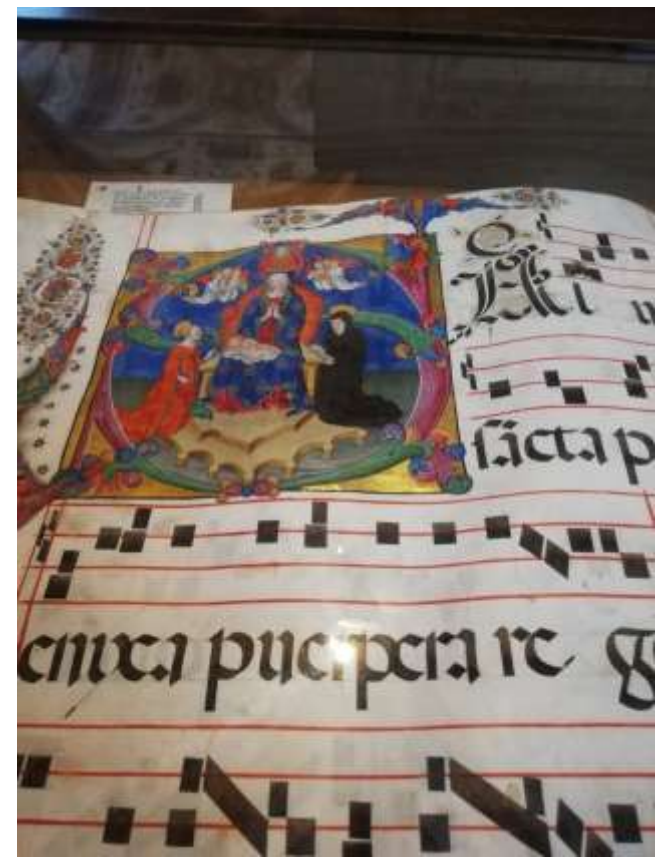 SAl u
sācta p
enixa puerpera re g